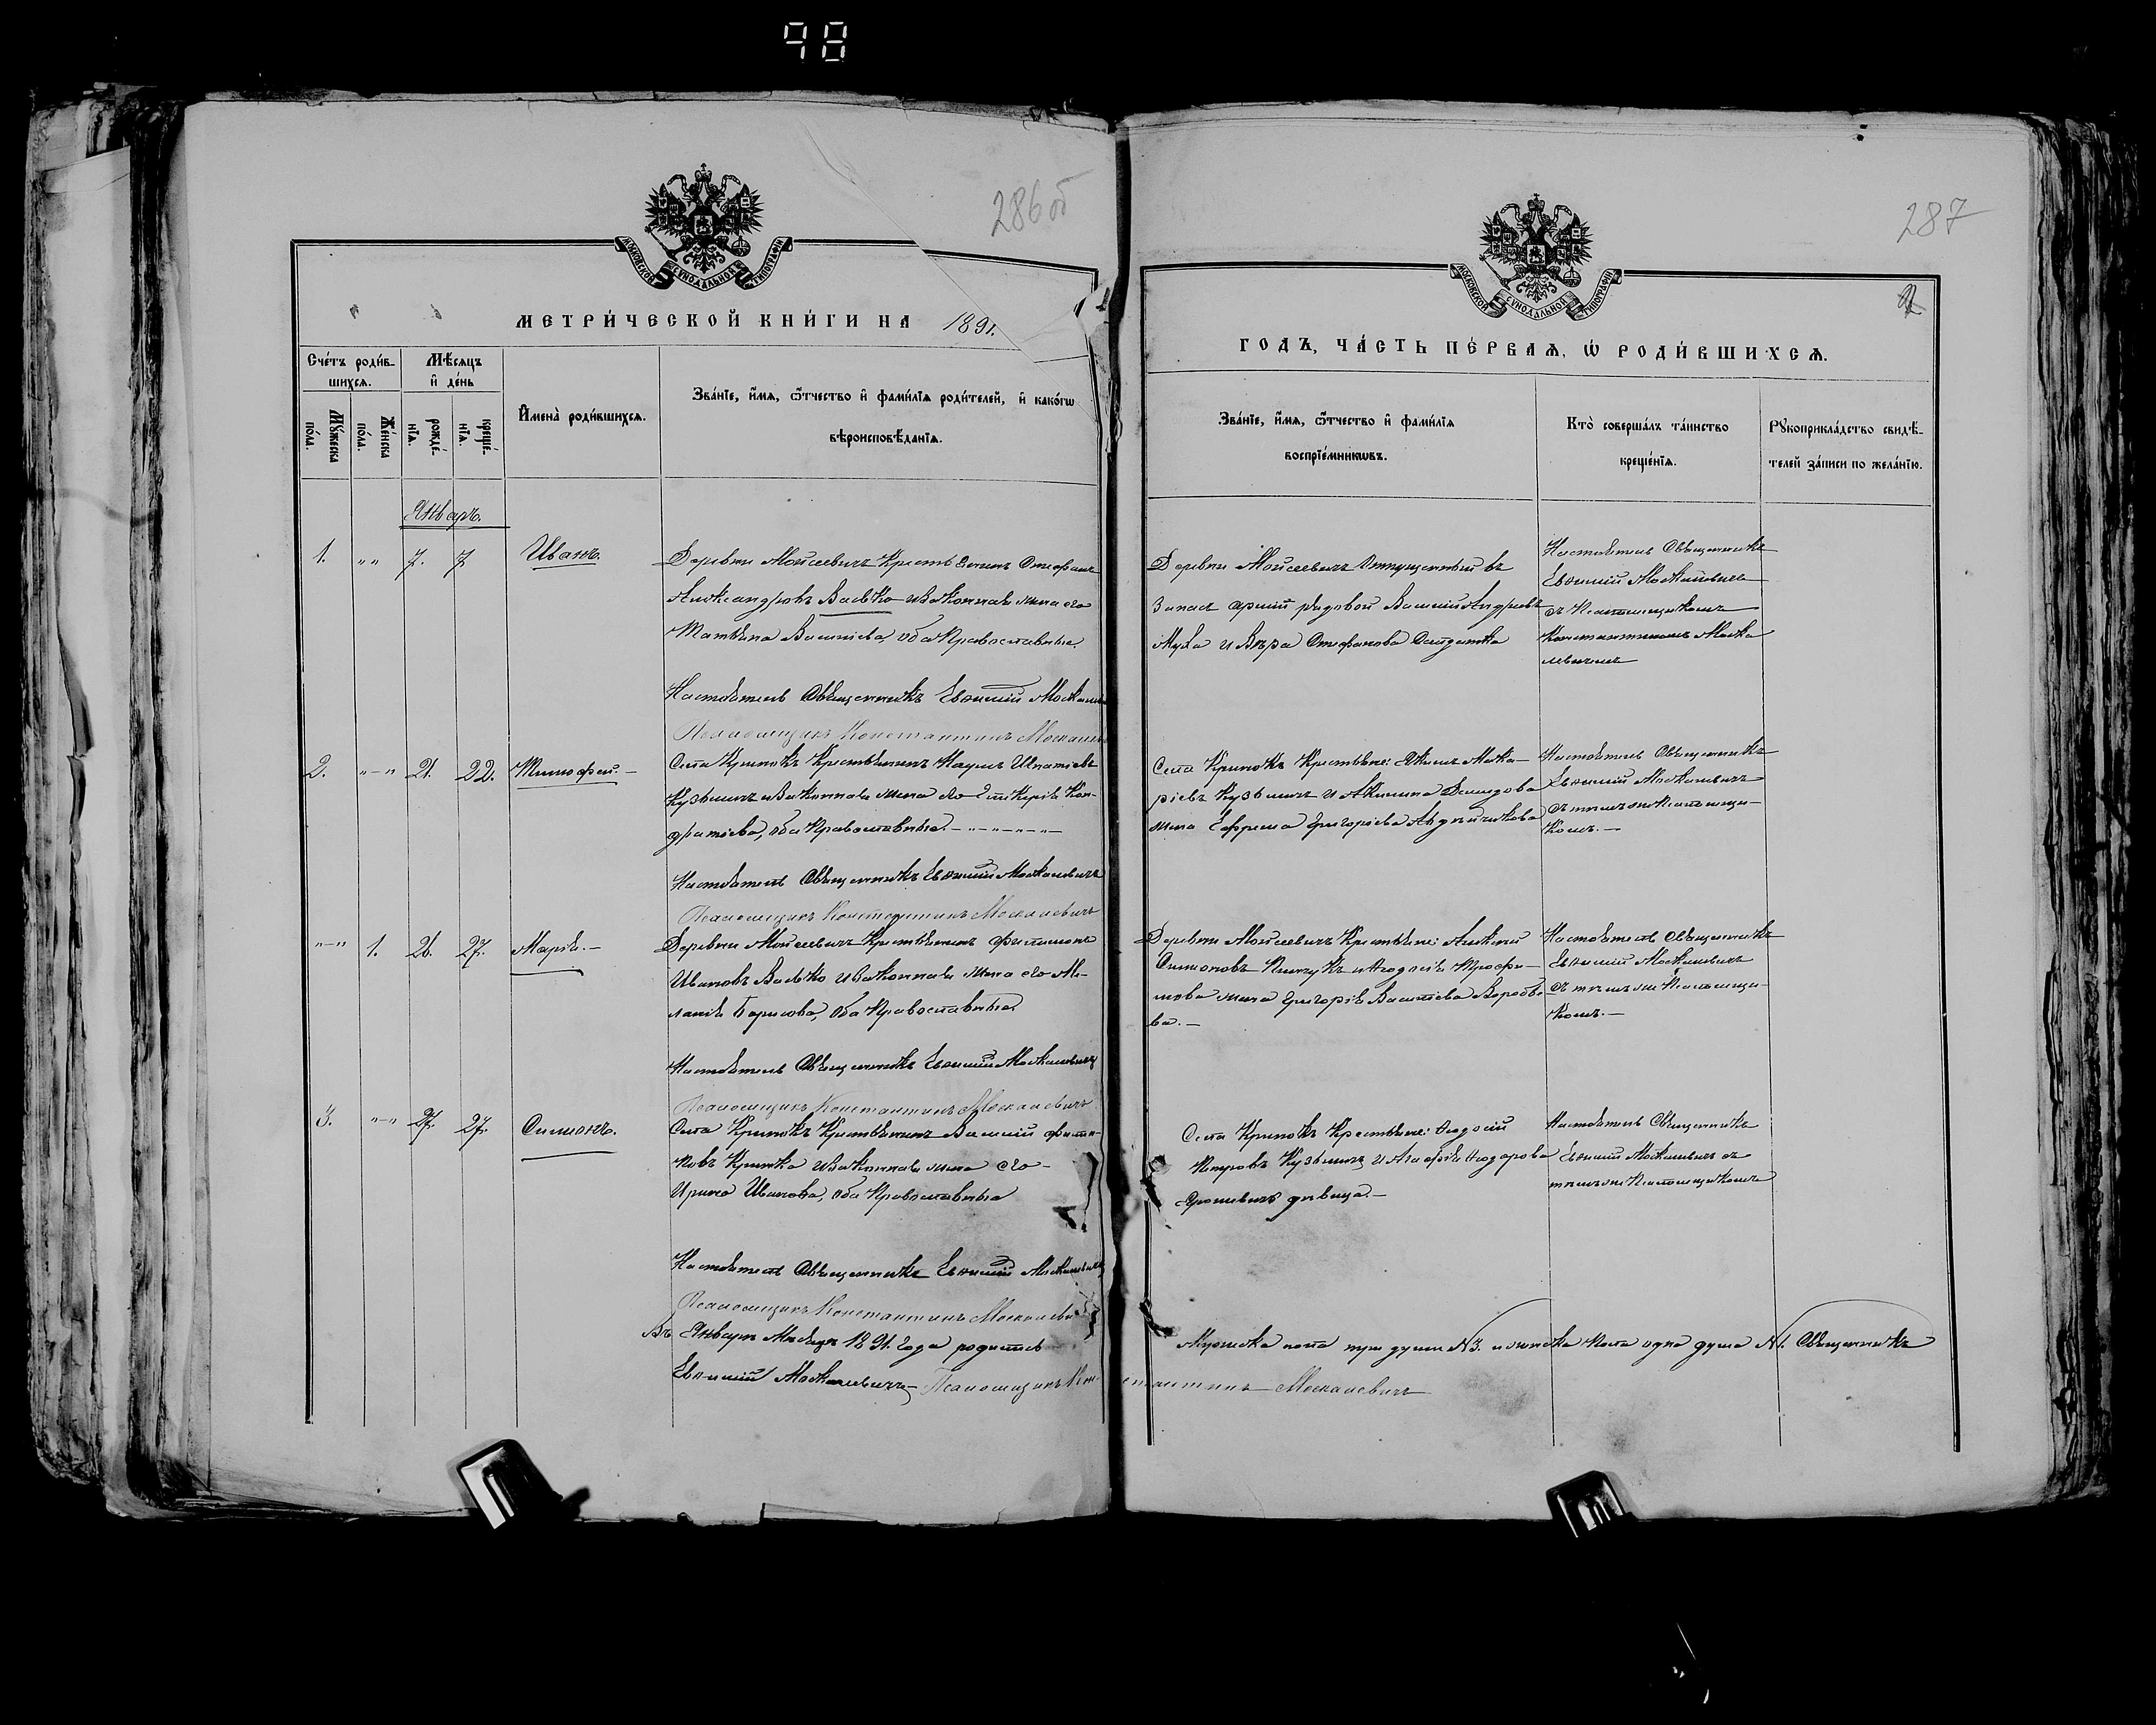 98
286 об
МОСКОВСКОЙ СѴНОДАЛЬНОЙ ТИПОГРАФІИ
МЕТРИ́ЧЕСКОЙ КНИ́ГИ НА 1891.
Сче́тъ роди́в-
шихсѧ.
Мꙋ́жеска
по́ла.
Же́нска
по́ла.
Мѣ́сѧцъ
и҆ де́нь
рожде́-
нїѧ.
креще́-
нїѧ.
И҆мена̀ роди́вшихсѧ.
Зва́нїе, и҆́мѧ, ѻ҆́тчество и҆ фами́лїѧ роди́телей, и҆ како́гѡ
вѣроисповѣ́данїѧ.
Январь.
1. „ „ 7. 7 Иванъ.
Деревни Мойсеевичъ Крестьянинъ Стефанъ
Александровъ Валько и Законная жена его
Татьяна Васильева оба Православные.
Настоятель Священникъ Евѳимій
Псаломщикъ Константинъ
2. „—„ 21. 22. Тимофей.—
Села Кривокъ Крестьянинъ Наумъ Игнатіевъ
Кузьмичъ и Законная жена его Гликерія Кон-
дратіева, оба Православные.—„—„—„—„—
Настоятель Священникъ Евѳимій Москалевичъ
Псаломщикъ Константинъ Москалевичъ
„—„ 1. 26. 27. Марія.—
Деревни Мойсеевичъ Крестьянинъ Филимонъ
Ивановъ Валько и Законная жена его Ме-
ланія Борисова, оба Православные.
Настоятель Священникъ Евѳимій Москалевичъ
Псаломщикъ Константинъ Москалевичъ
3. „—„ 27. 27. Симонъ.
Села Кривокъ Крестьянинъ Василій Фили-
повъ и Законная жена его—
Ирина Иванова, оба Православные
Настоятель Священникъ Евѳимій Москалевичъ
Псаломщикъ Константинъ
Въ Январѣ Мѣсяцѣ 1891. года родилось
Евѳимій Москалевичъ Псаломщикъ Кон-
287
МОСКОВСКОЙ СѴНОДАЛЬНОЙ ТИПОГРАФІИ
ГОДЪ, ЧА́СТЬ ПЕ́РВАѦ, Ѡ҆ РОДИ́ВШИХСѦ.
Зва́нїе, и҆́мѧ, ѻ҆́тчество и҆ фами́лїѧ
воспрїе́мникѡвъ.
Кто̀ соверша́лъ та́инство
креще́нїѧ.
Рꙋкоприкла́дство свидѣ́-
телей за́писи по жела́нїю.
Деревни Мойсеевичъ Отпущенный въ
Запасъ арміи рядовой Василій Андреевъ
Муха и Вѣра Стефанова Солдатка
Настоятель Священникъ
Евѳимій Москалевичъ
съ Псаломщикомъ
Константиномъ Моска
левичемъ
Села Кривокъ Крестьяне: Мака-
ріевъ Кузьмичъ и Акилина Демидова
жена Ефрема Григоріева
Настоятель Священникъ
Евѳимій Москалевичъ
съ тѣмъ же Псаломщи-
комъ.—
Деревни Мойсеевичъ Крестьяне: Алексѣй
Симоновъ Пинчукъ и Ѳеодосія Трофи-
мова жена Григорія Васильева Воробье
ва.—
Настоятель Священникъ
Евѳимій Москалевичъ
съ тѣмъ же Псаломщи-
комъ.—
Села Кривокъ Крестьяне: Ѳеодосій
Петровъ Кузьмичъ и Агафія Ѳеодорова
дѣвица.—
Настоятель Священникъ
Евѳимій Москалевичъ съ
тѣмъ же Псаломщикомъ
Мужеска пола три души №3. и женска пола одна душа №1. Священникъ
стантинъ Москалевичъ